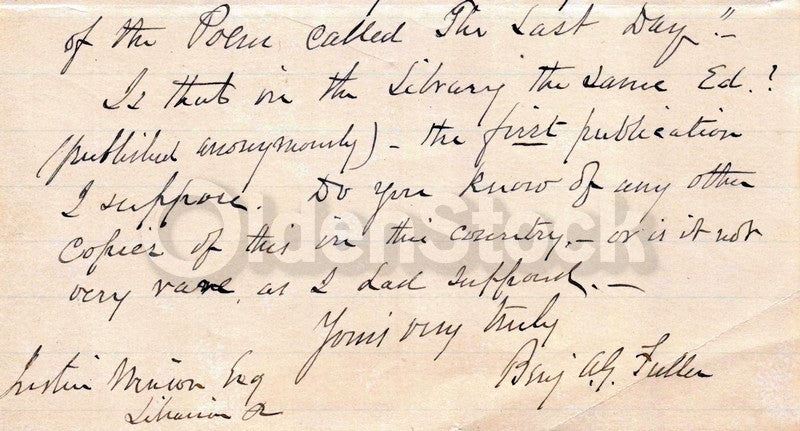 of the Poem called The Last Day."–
Is that in the Library the same Ed.?
(published anonymously) – the first publication
I suppose. Do you know of any other
copies of this in this country, – or is it not
very rare, as I had supposed. –
Yours very truly
Benj A.G. Fuller
Justin Winsor Esq
Librarian &
OldenStock